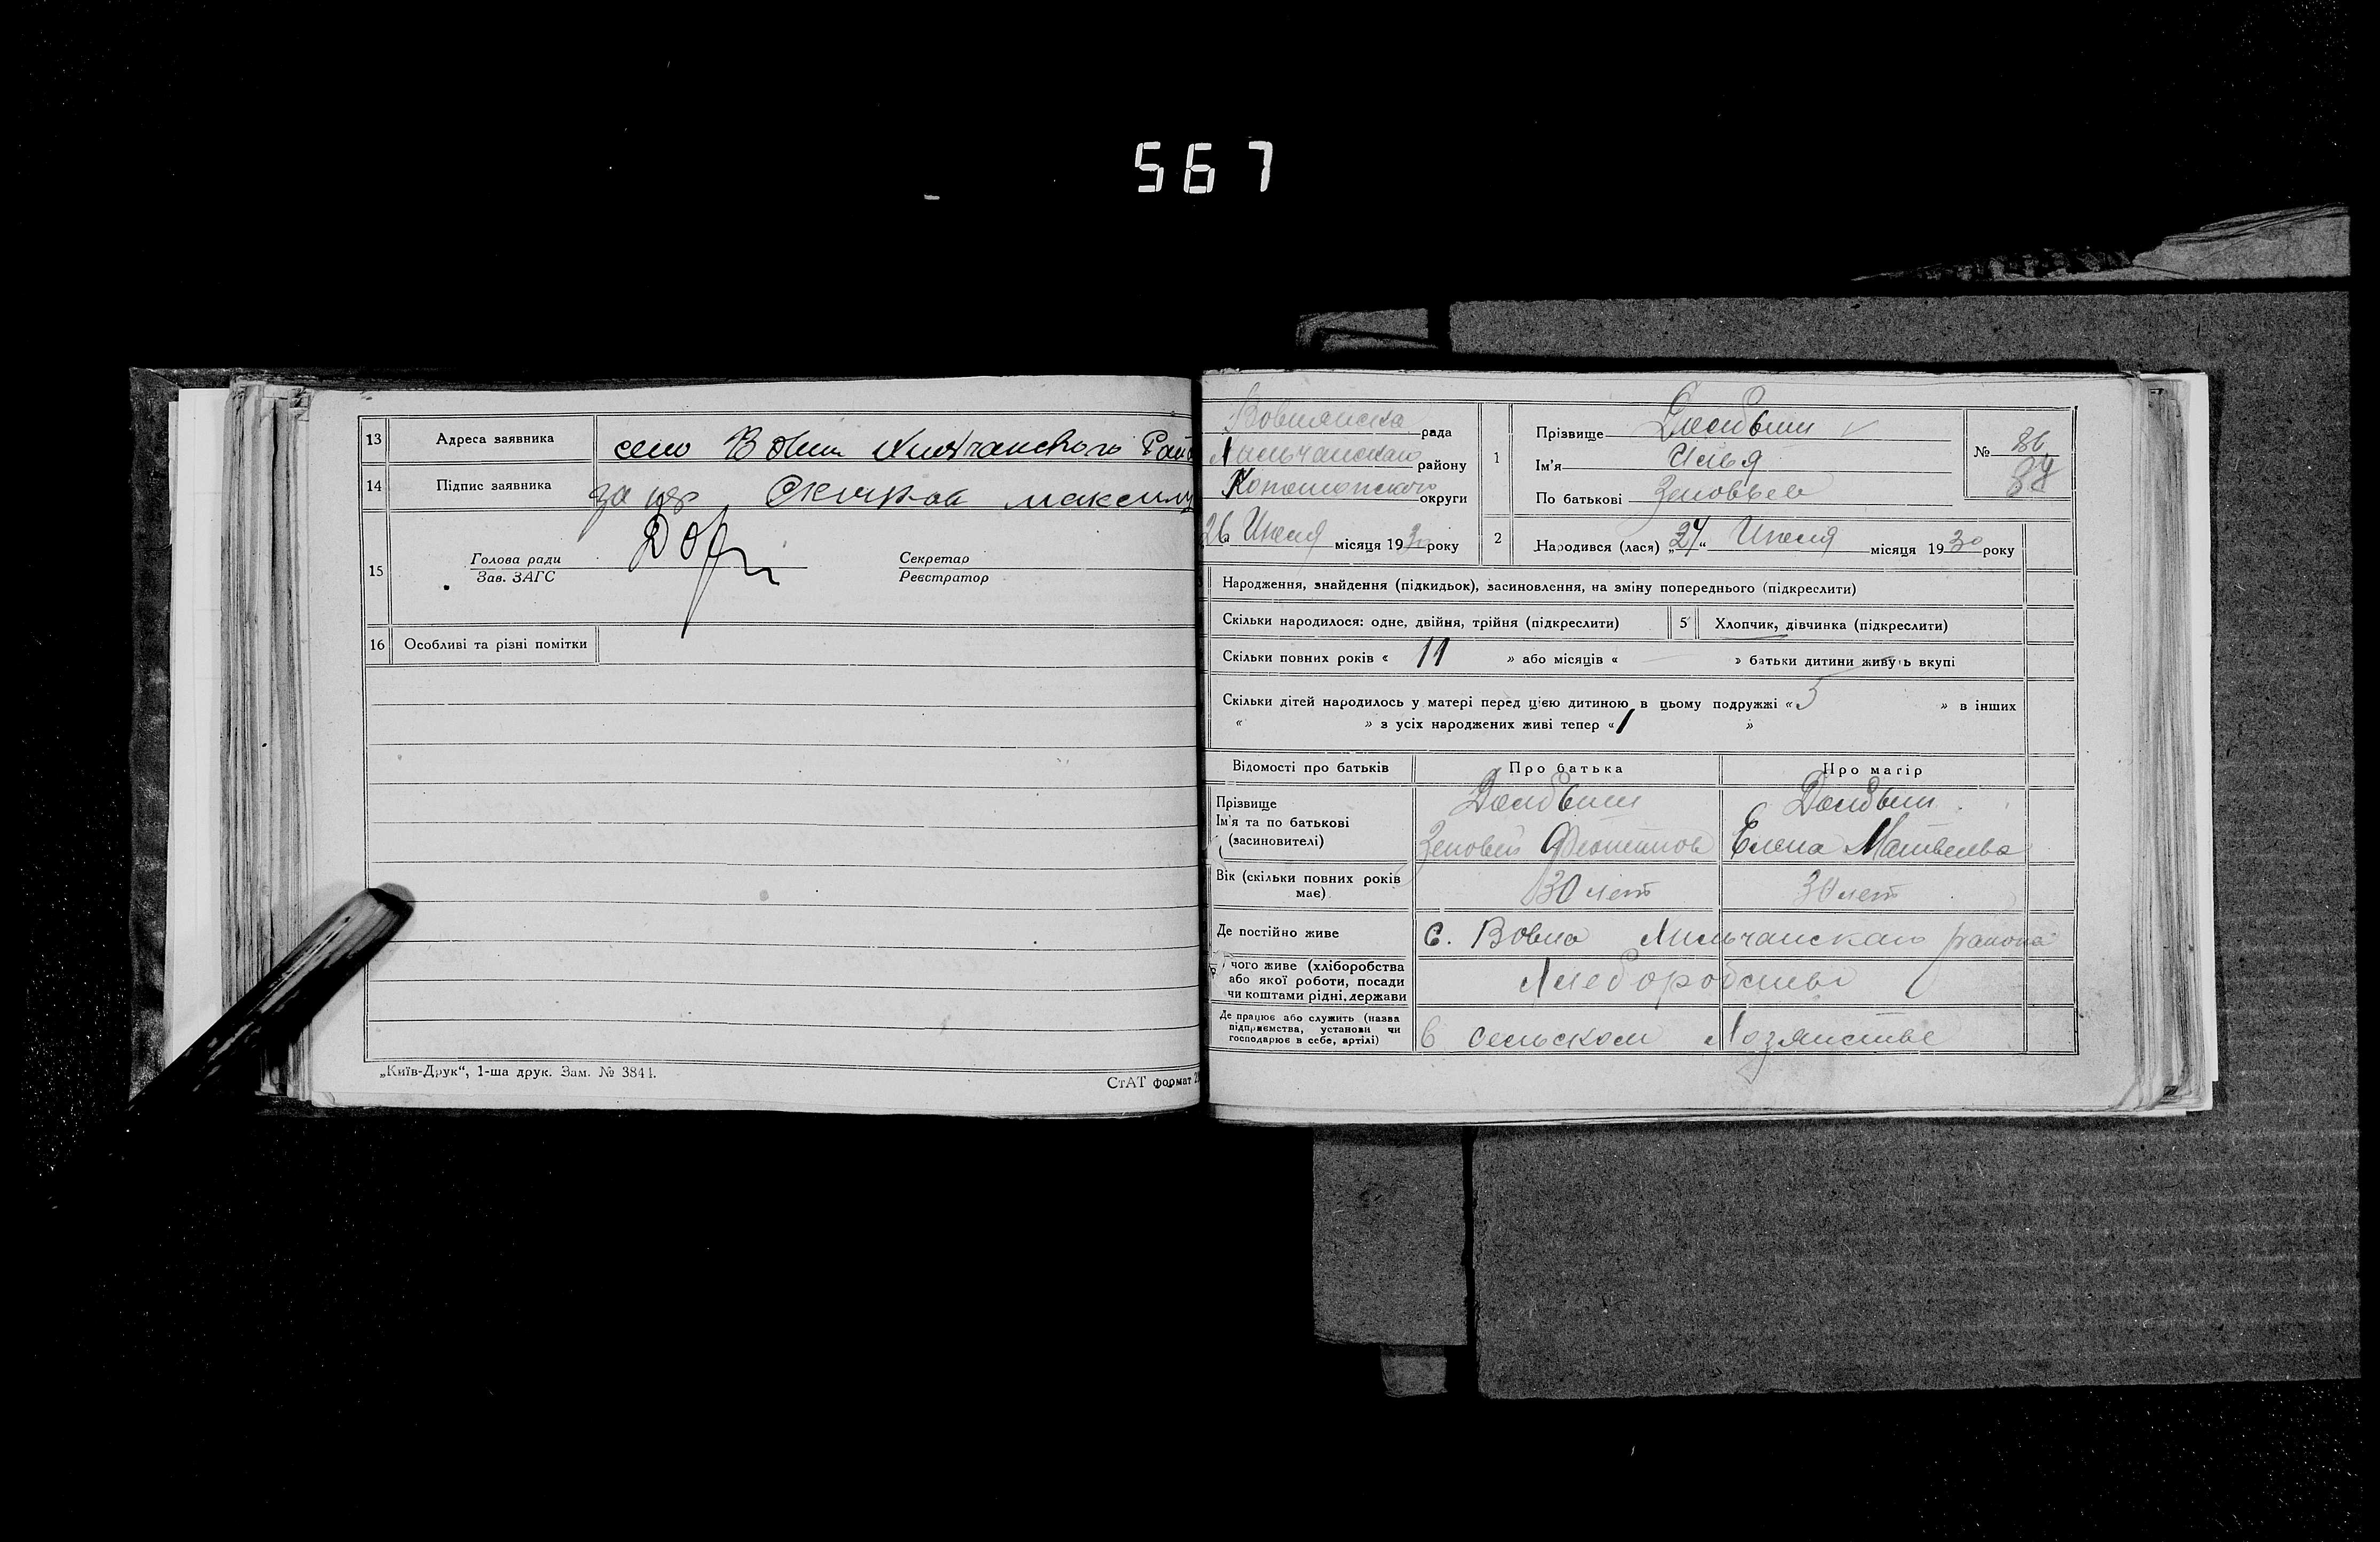 567
13 Адреса заявника село Вовна Хильчанского Рай
14 Підпис заявника за
15 Голова ради Секретар
Зав. ЗАГС Реєстратор
16 Особливі та різні помітки
„Київ-Друк“, 1-ша друк. Зам. № 3841.
СтАТ формат
Вовнянска рада
Хильчанскаго району
Конотопского округи
26 Июня місяця 1930 року
1 Прізвище
Ім'я Илья
По батькові Зеновьев
№ 86
84
2 Народився (лася) „24“ Июня місяця 1930 року
Народження, знайдення (підкидьок), засиновлення, на зміну попереднього (підкреслити)
Скільки народилося: одне, двійня, трійня (підкреслити) 5 Хлопчик, дівчинка (підкреслити)
Скільки повних років « 11 » або місяців « » батьки дитини живуть вкупі
Скільки дітей народилось у матері перед цією дитиною в цьому подружжі « 5 » в інших
« » з усіх народжених живі тепер « 1 »
Відомості про батьків Про батька Про матір
Прізвище
Ім'я та по батькові
(засиновителі) Зеновей Елена Матвеева
Вік (скільки повних років
має) 30 лет 30 лет
Де постійно живе с. Вовна Хильчанскаго района
чого живе (хліборобства
або якої роботи, посади
чи коштами рідні, держави Хлеборобства
Де працює або служить (назва
підприємства, установи чи
господарює в себе, артілі) В сельском Хозяистве